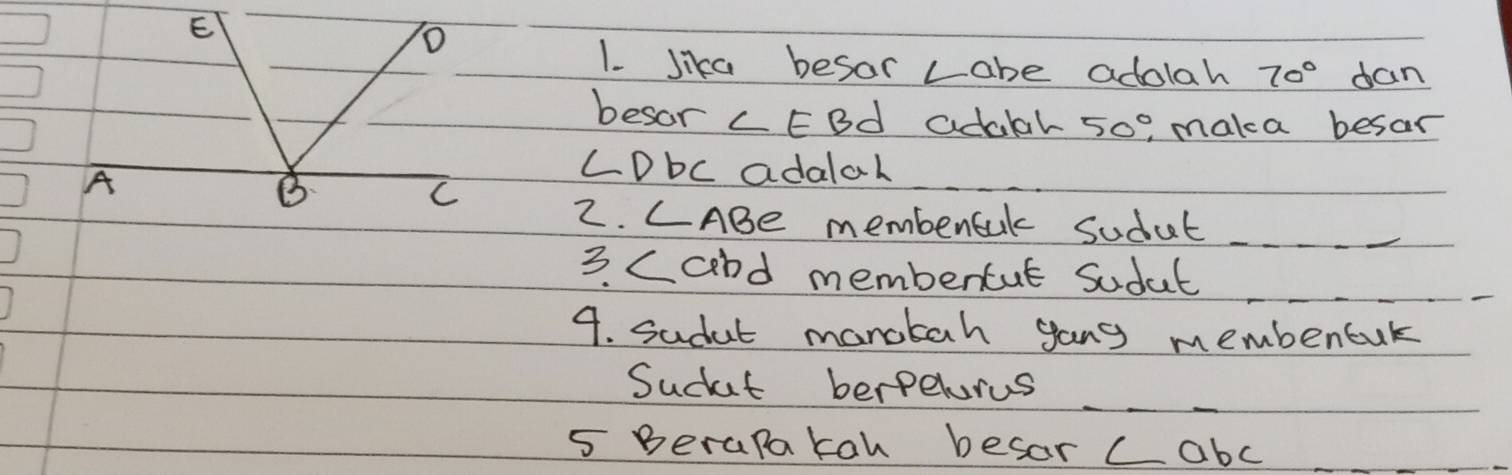 E
D
A
B
C
1. Jika besar ∠abe adalah 70° dan
besar ∠EBd adalah 50°, maka besar
∠DbC adalah ----
2. ∠ABe membentuk sudut -----
3. ∠abd membentuk sudut ------
4. sudut manakah yang membentuk
Sudut berpelurus ---
5 Berapa kah besar ∠abc ----